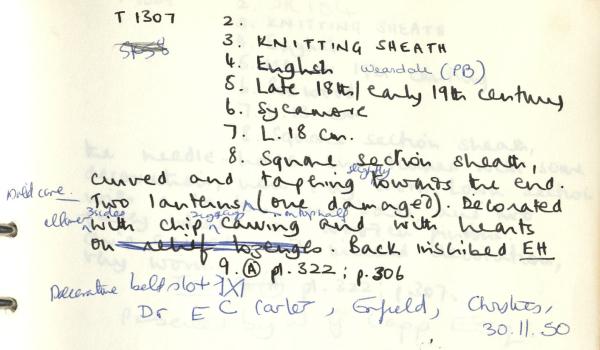 T 1307 2.
3. KNITTING SHEATH
4. English Weardale (PB)
5. Late 18th/early 19th century
6. Sycamore
7. L. 18 cm.
8. Square section sheath,
curved and tapering slightly towards the end.
Two lanterns (one damaged). Decorated
3 sides zigzag on top half
with chip carving and with hearts
on relief lozenges. Back inscribed EH
9. (A) pl. 322; p. 306
Decorative belt slot
Dr E C Carter, Enfield, Christies,
30.11.50